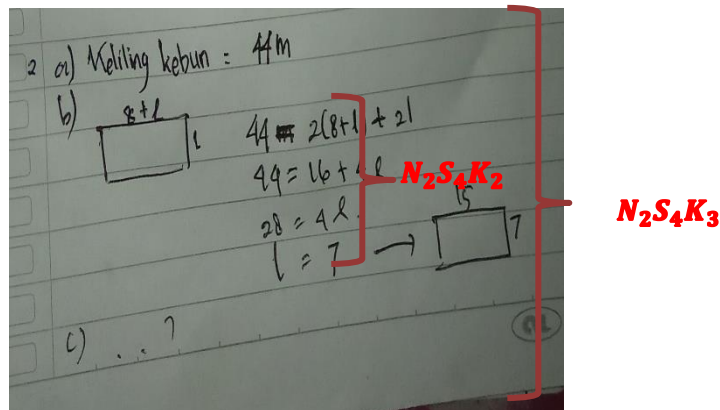 2 a) Keliling kebun = 44 m
b) 8+l
l
44 = 2(8+l) + 2l
44 = 16 + 4l
N₂S₄K₂
28 = 4l
l = 7 →
15
7
N₂S₄K₃
c) . . . ?